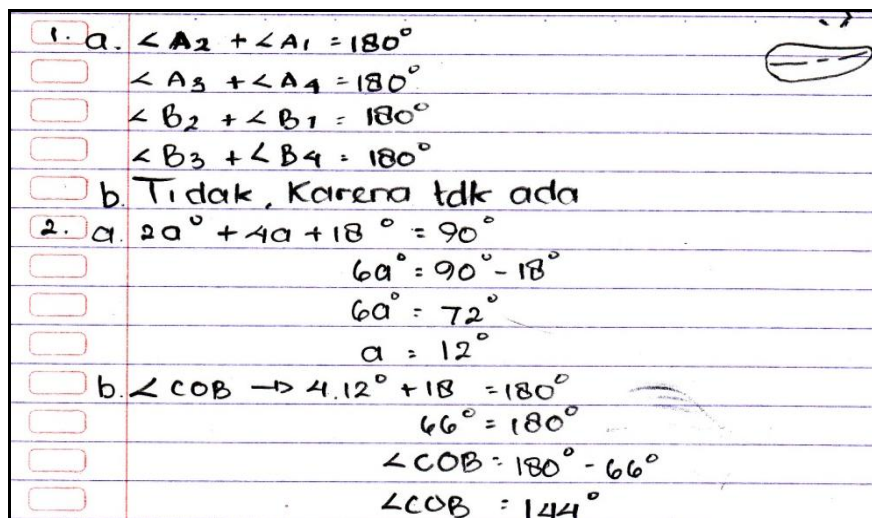 1. a. ∠A2 + ∠A1 = 180°
∠A3 + ∠A4 = 180°
∠B2 + ∠B1 = 180°
∠B3 + ∠B4 = 180°
b. Tidak, Karena tdk ada
2. a. 2a° + 4a + 18° = 90°
6a° = 90° - 18°
6a° = 72°
a = 12°
b. ∠COB → 4.12° + 18 = 180°
66° = 180°
∠COB = 180° - 66°
∠COB = 144°